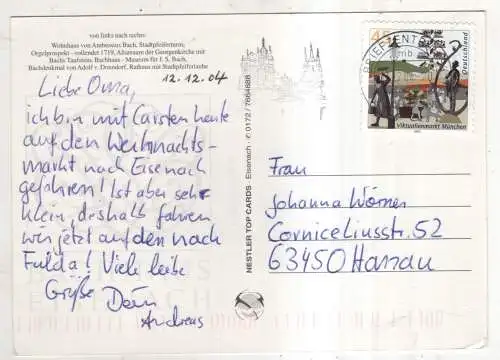 von links nach rechts:
Wohnhaus von Ambrosius Bach, Stadtpfeiferturm,
Orgelprospekt - vollendet 1719, Altarraum der Georgenkirche mit
Bachs Taufstein, Bachhaus - Museum für J. S. Bach,
Bachdenkmal von Adolf v. Donndorf, Rathaus mit Stadtpfeiferstube
12.12.04
Liebe Oma,
ich bin mit Carsten heute
auf den Weihnachts-
markt nach Eisenach
gefahren! Ist aber sehr
klein, deshalb fahren
wir jetzt auf den nach
Fulda! Viele liebe
Grüße Dein
Andreas
NESTLER TOP CARDS · Eisenach · ✆ 0172 / 7664688
BRIEFZENT
Deutschland
Viktualienmarkt München
Frau
Johanna Wörner
Corniceliusstr. 52
63450 Hanau